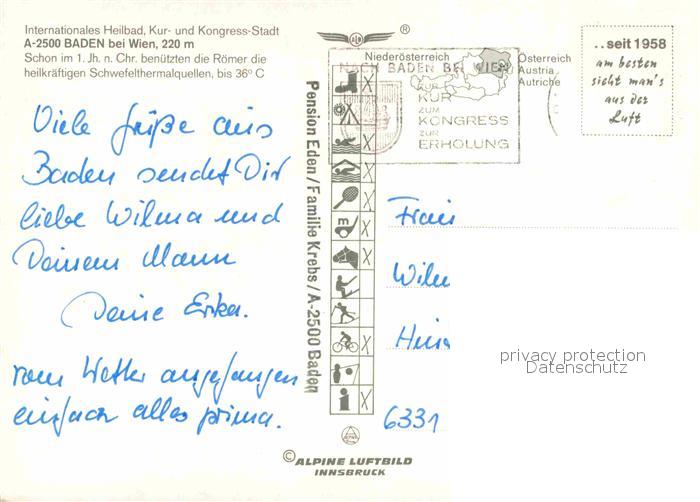 Internationales Heilbad, Kur- und Kongress-Stadt
A-2500 BADEN bei Wien, 220 m
Schon im 1. Jh. n. Chr. benützten die Römer die
heilkräftigen Schwefelthermalquellen, bis 36° C
Viele Grüße aus
Baden sendet Dir
liebe Wilma und
Deinem Mann
Deine Erika.
vom Wetter angefangen
einfach alles prima.
Pension Eden/Familie Krebs/A-2500 Baden
®
Niederösterreich
Österreich
Austria
Autriche
NACH BADEN BEI WIEN
ZUR
KUR
ZUM
KONGRESS
ZUR
ERHOLUNG
..seit 1958
am besten
sieht man's
aus der
Luft
Frau
6331
privacy protection
Datenschutz
© ALPINE LUFTBILD
INNSBRUCK